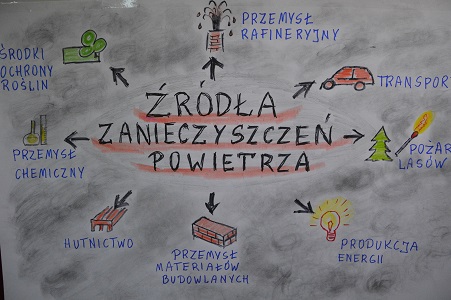 ŹRÓDŁA
ZANIECZYSZCZEŃ
POWIETRZA
PRZEMYSŁ
RAFINERYJNY
TRANSPOR
POŻAR
LASÓW
PRODUKCJA
ENERGII
PRZEMYSŁ
MATERIAŁÓW
BUDOWLANYCH
HUTNICTWO
PRZEMYSŁ
CHEMICZNY
ŚRODKI
OCHRONY
ROŚLIN